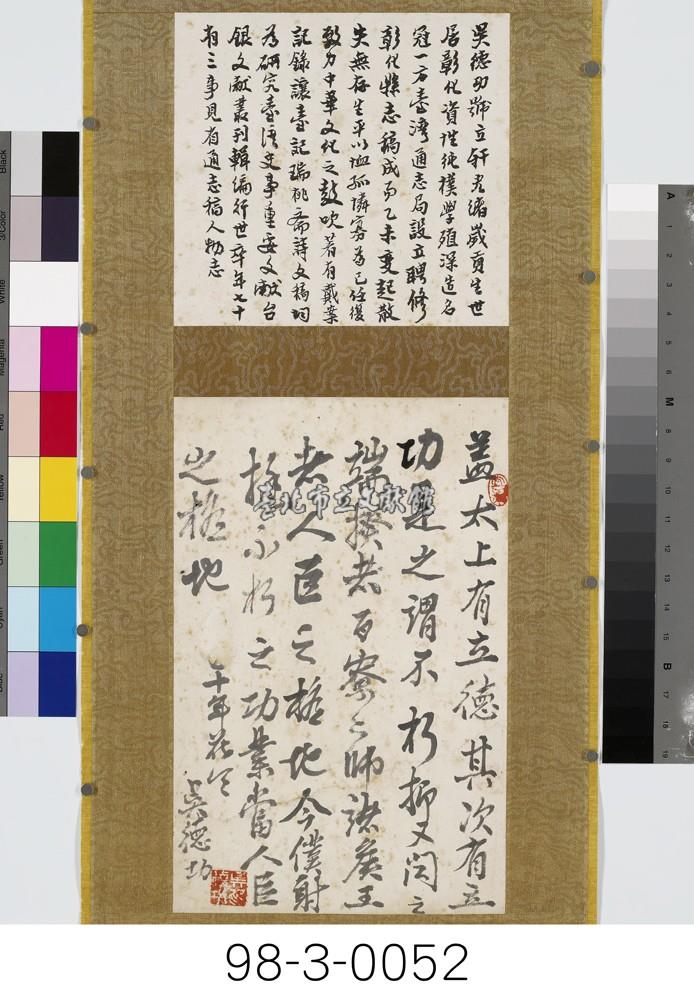 吳德功號立軒光緒歲貢生世
居彰化資性純樸學殖深造名
冠一方臺灣通志局設立聘修
彰化縣志稿成而乙未變起散
失無存生平以恤孤憐寡為己任復
致力中華文化之鼓吹著有戴案
記錄讓臺記瑞桃齋詩文稿均
為研究臺灣史事重要文獻台
銀文獻叢刊輯編行世卒年七十
有三事見省通志稿人物志
蓋太上有立德其次有立
功是之謂不朽抑又聞之
端揆者百寮之師諸侯王
者人臣之極地今僕射
挺不朽之功業當人臣
之極地
十年花令
吳德功
臺北市立文獻館
Black
3/Color
White
Magenta
Red
Yellow
Green
Cyan
Blue
A
1
2
3
4
5
6
M
8
9
10
11
12
13
14
15
B
17
18
19
98-3-0052